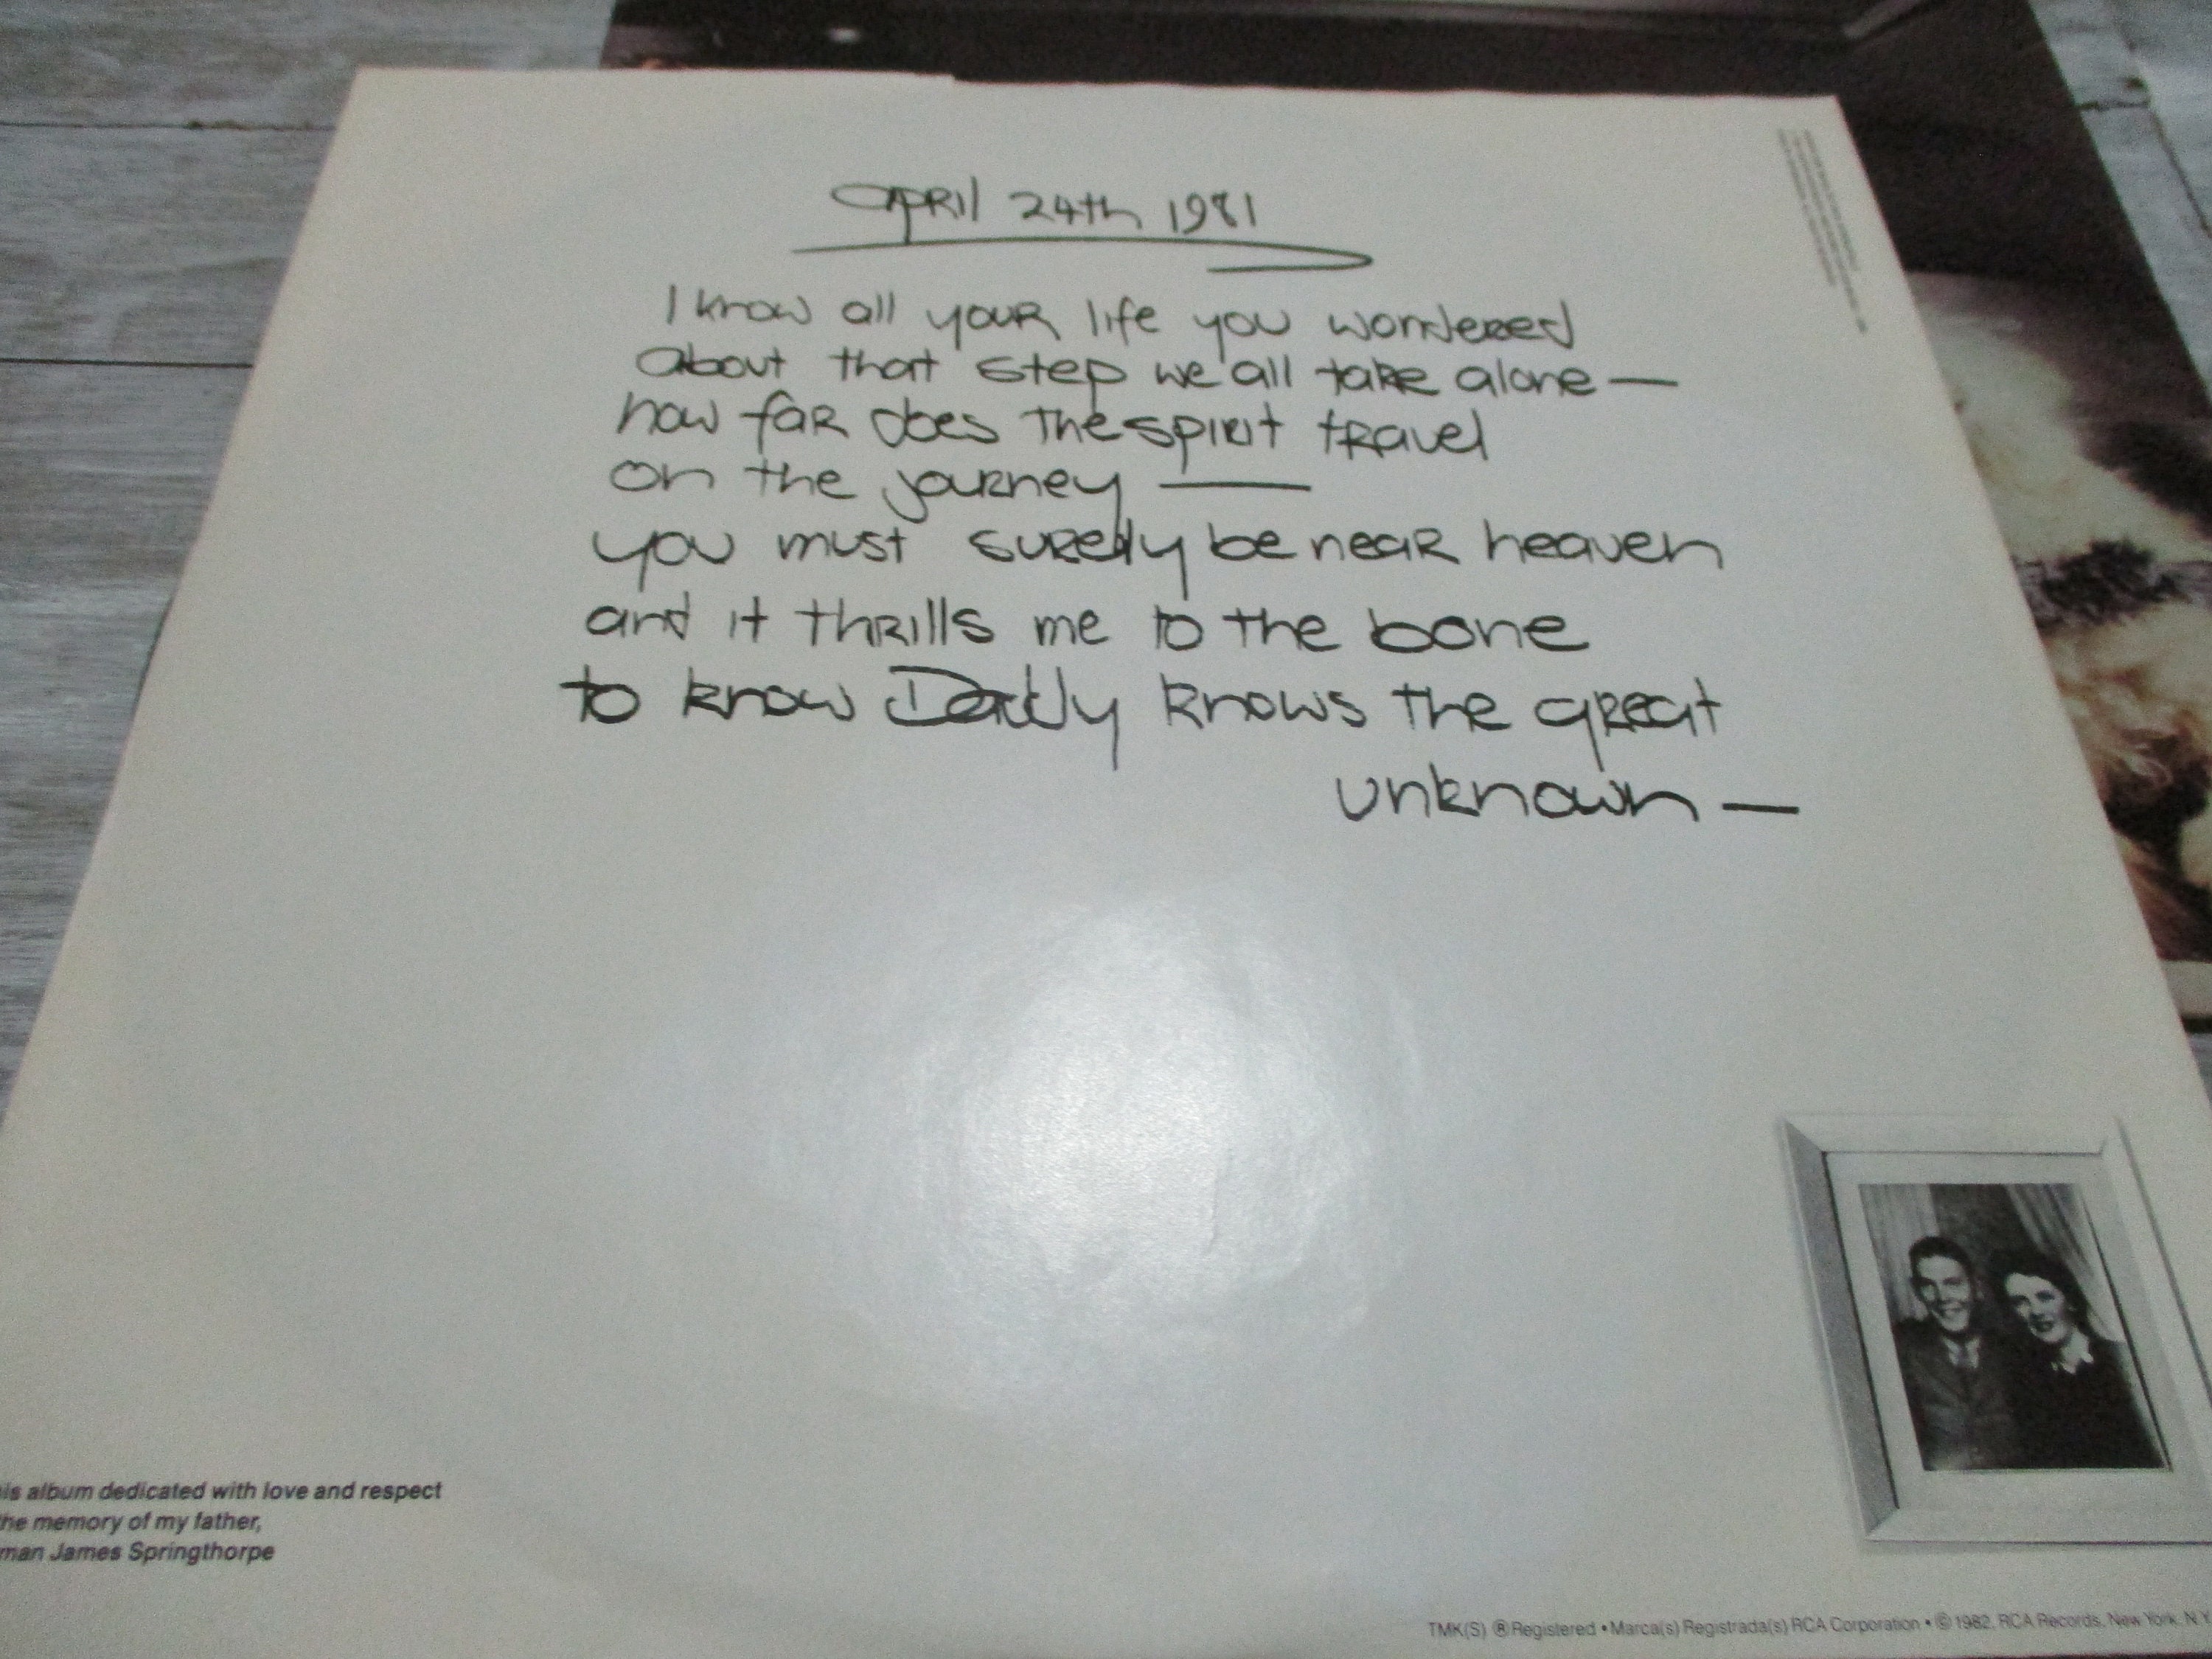 April 24th 1981
I know all your life you wondered
about that step we all take alone —
how far does the spirit travel
on the journey —
you must surely be near heaven
and it thrills me to the bone
to know Daddy knows the great
unknown —
is album dedicated with love and respect
he memory of my father,
man James Springthorpe
TMK(S) ® Registered • Marca(s) Registrada(s) RCA Corporation • © 1982, RCA Records, New York, N.Y.